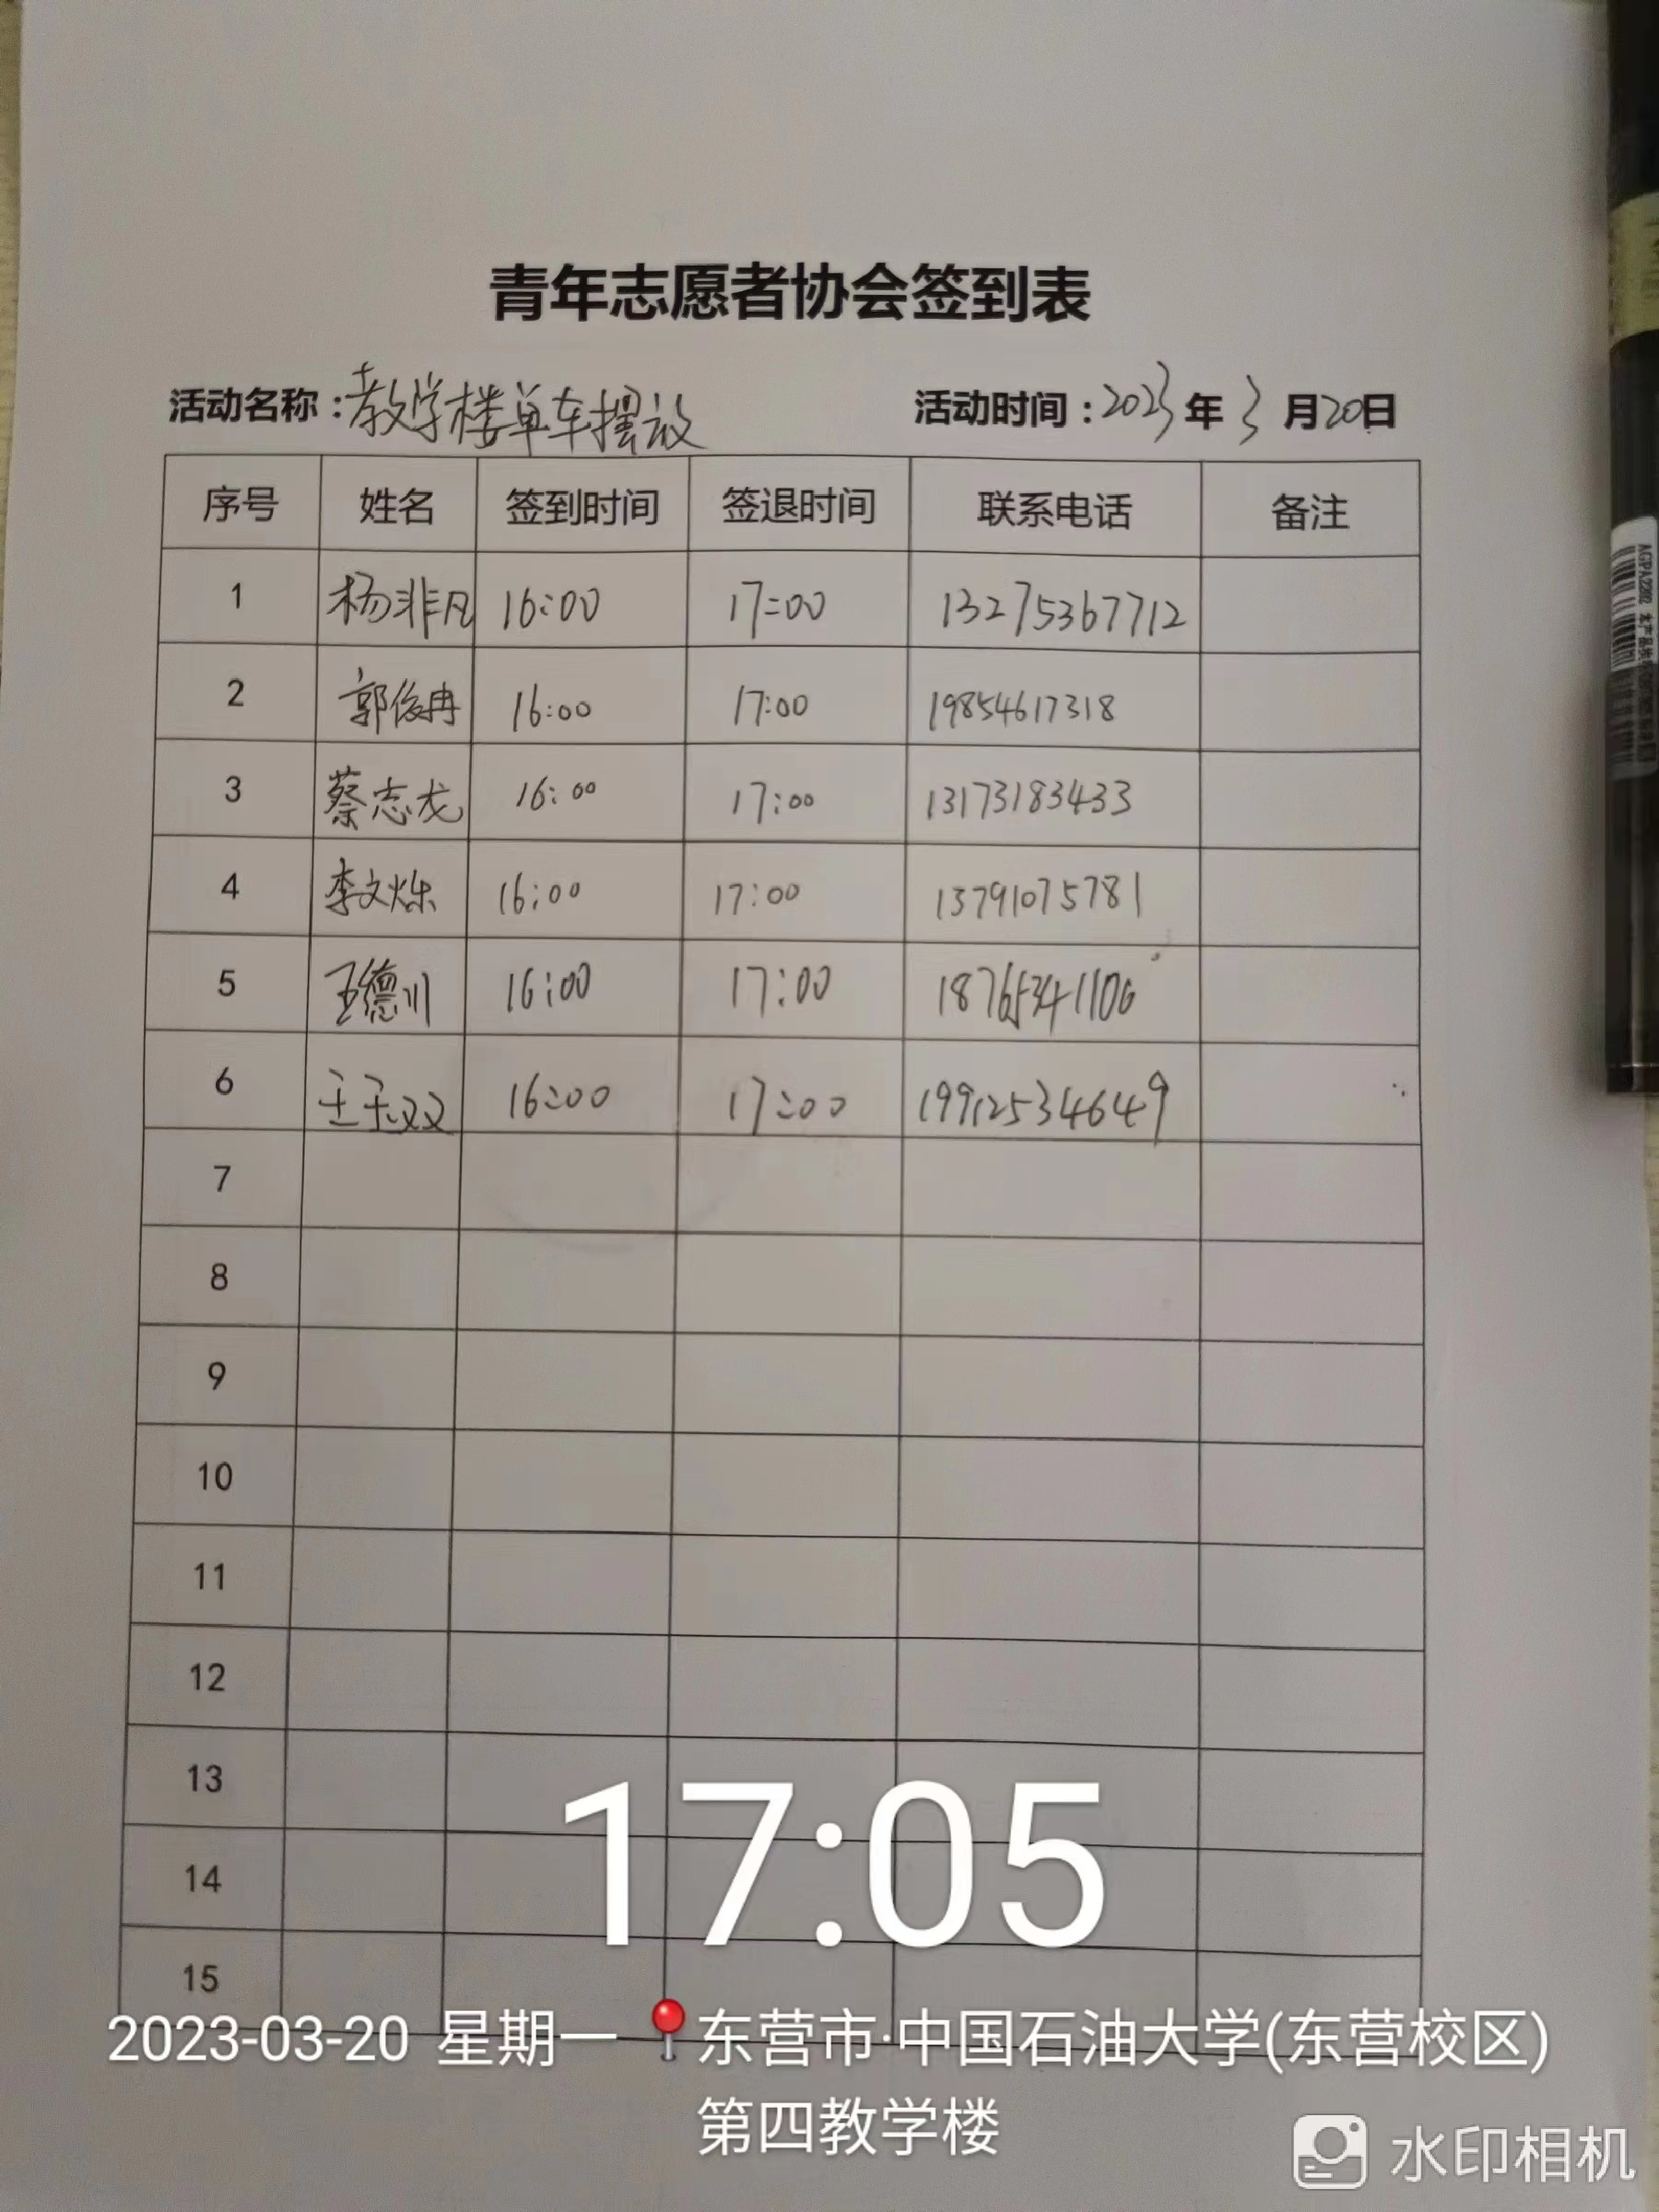 青年志愿者协会签到表
活动名称：教学楼单车摆放 活动时间：2023年3月20日
序号 姓名 签到时间 签退时间 联系电话 备注
1 杨非凡 16:00 17:00 13275367712
2 郭俊冉 16:00 17:00 19854617318
3 蔡志龙 16:00 17:00 13173183433
4 李文烁 16:00 17:00 13791075781
5 王德川 16:00 17:00 18765341106
6 王玉双 16:00 17:00 19912534649
7
8
9
10
11
12
13
14
15
17:05
2023-03-20 星期一 东营市·中国石油大学(东营校区)
第四教学楼
水印相机
AGPA2202